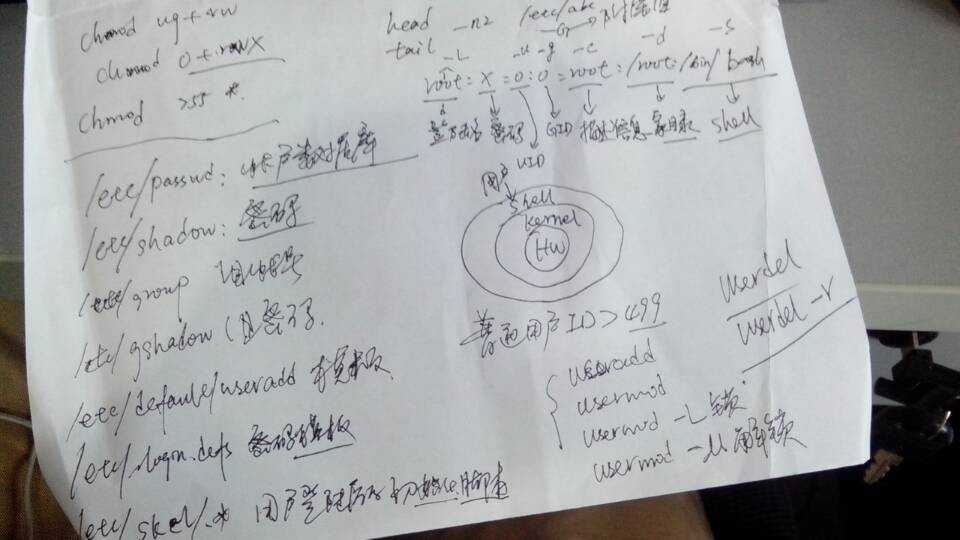 chmod ug+rw
chmod o+rwx
chmod 755 *
head -n2 /etc/abc
tail
-L -u -g -c -d -s
root:x=0:0=root:/root:/bin/bash
密码 GID 描述信息 家目录 shell
UID
/etc/passwd:
/etc/shadow: 密码
/etc/group
/etc/gshadow 组密码
/etc/default/useradd
/etc/login.defs 密码模板
/etc/skel/.* 用户登陆后的初始化脚本
用户
shell
kernel
HW
普通用户ID>499
useradd
usermod
usermod -L 锁
usermod -U 解锁
userdel
userdel -r